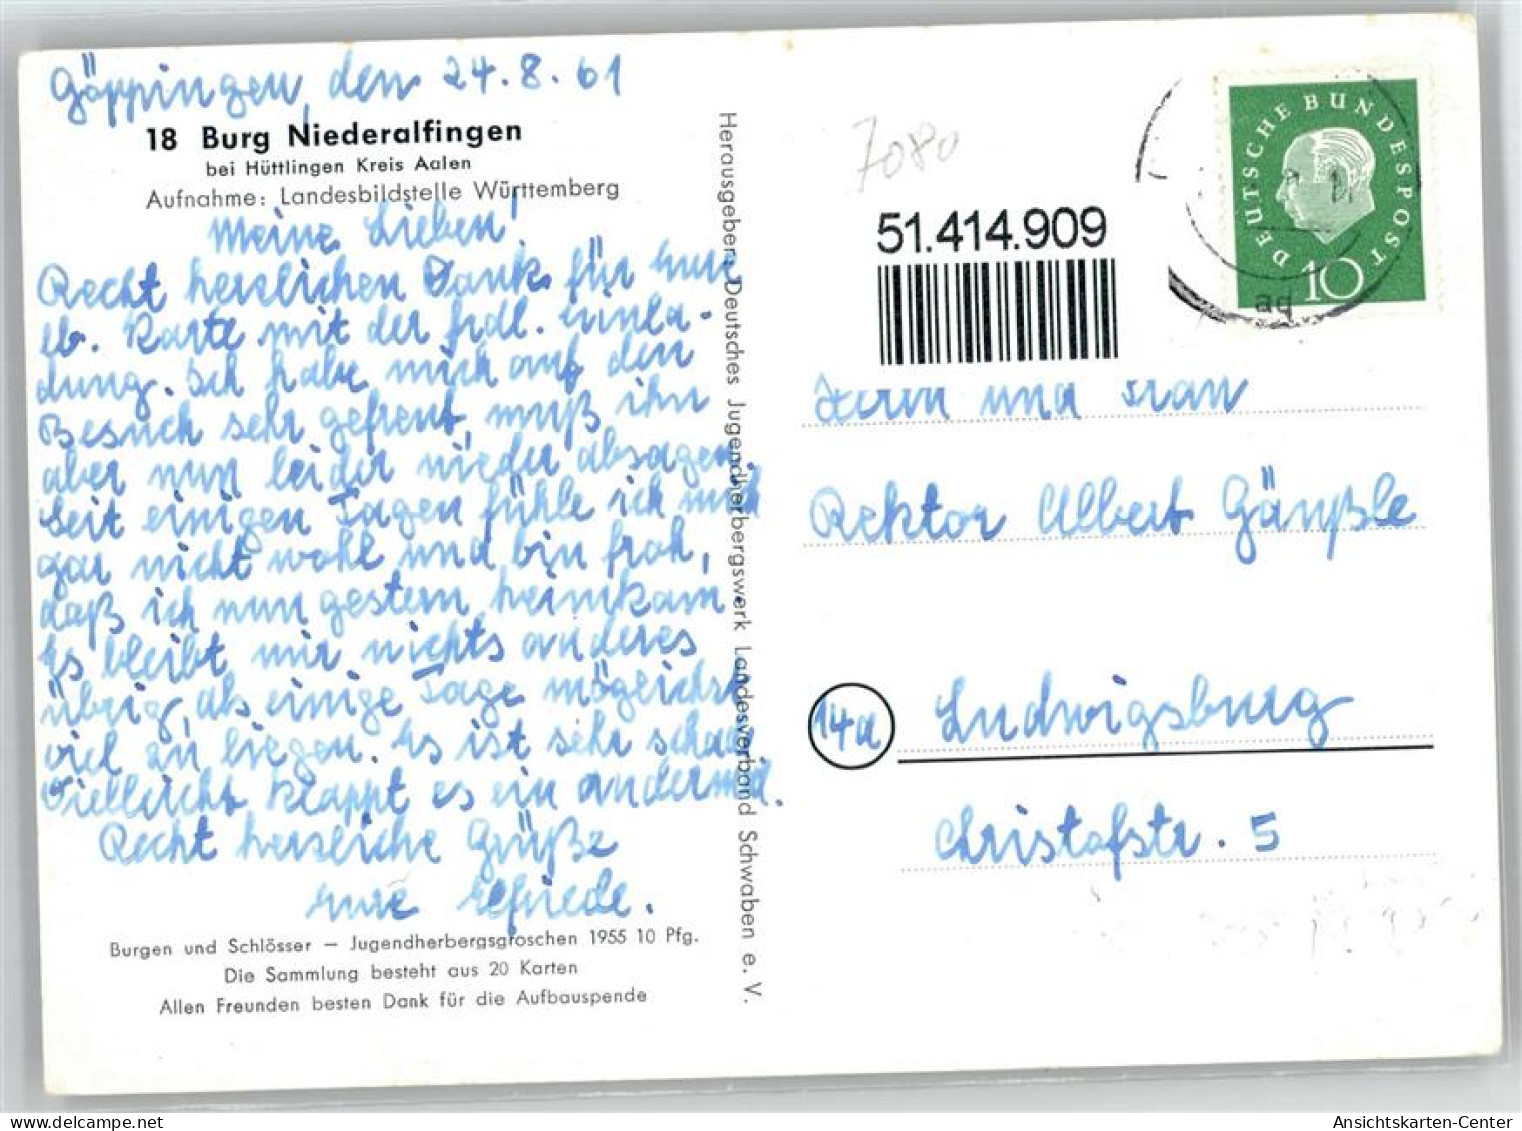 Göppingen, den 24.8.61
18 Burg Niederalfingen
bei Hüttlingen Kreis Aalen
Aufnahme: Landesbildstelle Württemberg
Meine Lieben!
Recht herzlichen Dank für Eure
lb. Karte mit der frdl. Einla-
dung. Ich habe mich auf den
Besuch sehr gefreut, muß ihn
aber nun leider wieder absagen.
Seit einigen Tagen fühle ich mich
gar nicht wohl und bin froh,
daß ich nun gestern heimkam.
Es bleibt mir nichts anderes
übrig, als einige Tage möglichst
viel zu liegen. Es ist sehr schade
Vielleicht klappt es ein andermal.
Recht herzliche Grüße
Eure Elfriede.
Burgen und Schlösser – Jugendherbergsgroschen 1955 10 Pfg.
Die Sammlung besteht aus 20 Karten
Allen Freunden besten Dank für die Aufbauspende
Herausgeber: Deutsches Jugendherbergswerk Landesverband Schwaben e. V.
7080
51.414.909
DEUTSCHE BUNDESPOST
10
ad
Herrn und Frau
Rektor Albert Gänßle
14a
Ludwigsburg
Christofstr. 5
Ansichtskarten-Center